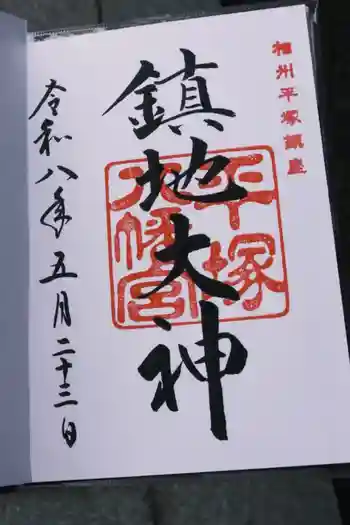 相州平塚鎮座
鎮地大神
平塚
八幡宮
令和八年五月二十三日